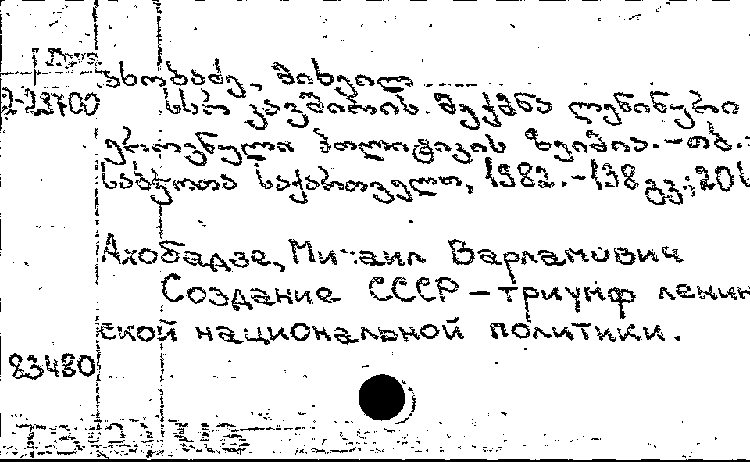 ახობაძე, მიხეილ
2-23700 სსრ კავშირის შექმნა ლენინური
ეროვნული პოლიტიკის ზეიმია. – თბ.:
საბჭოთა საქართველო, 1982. – 138 გვ.; 20
Ахобадзе, Михаил Варламович
Создание СССР – триумф ленин
ской национальной политики.
83480